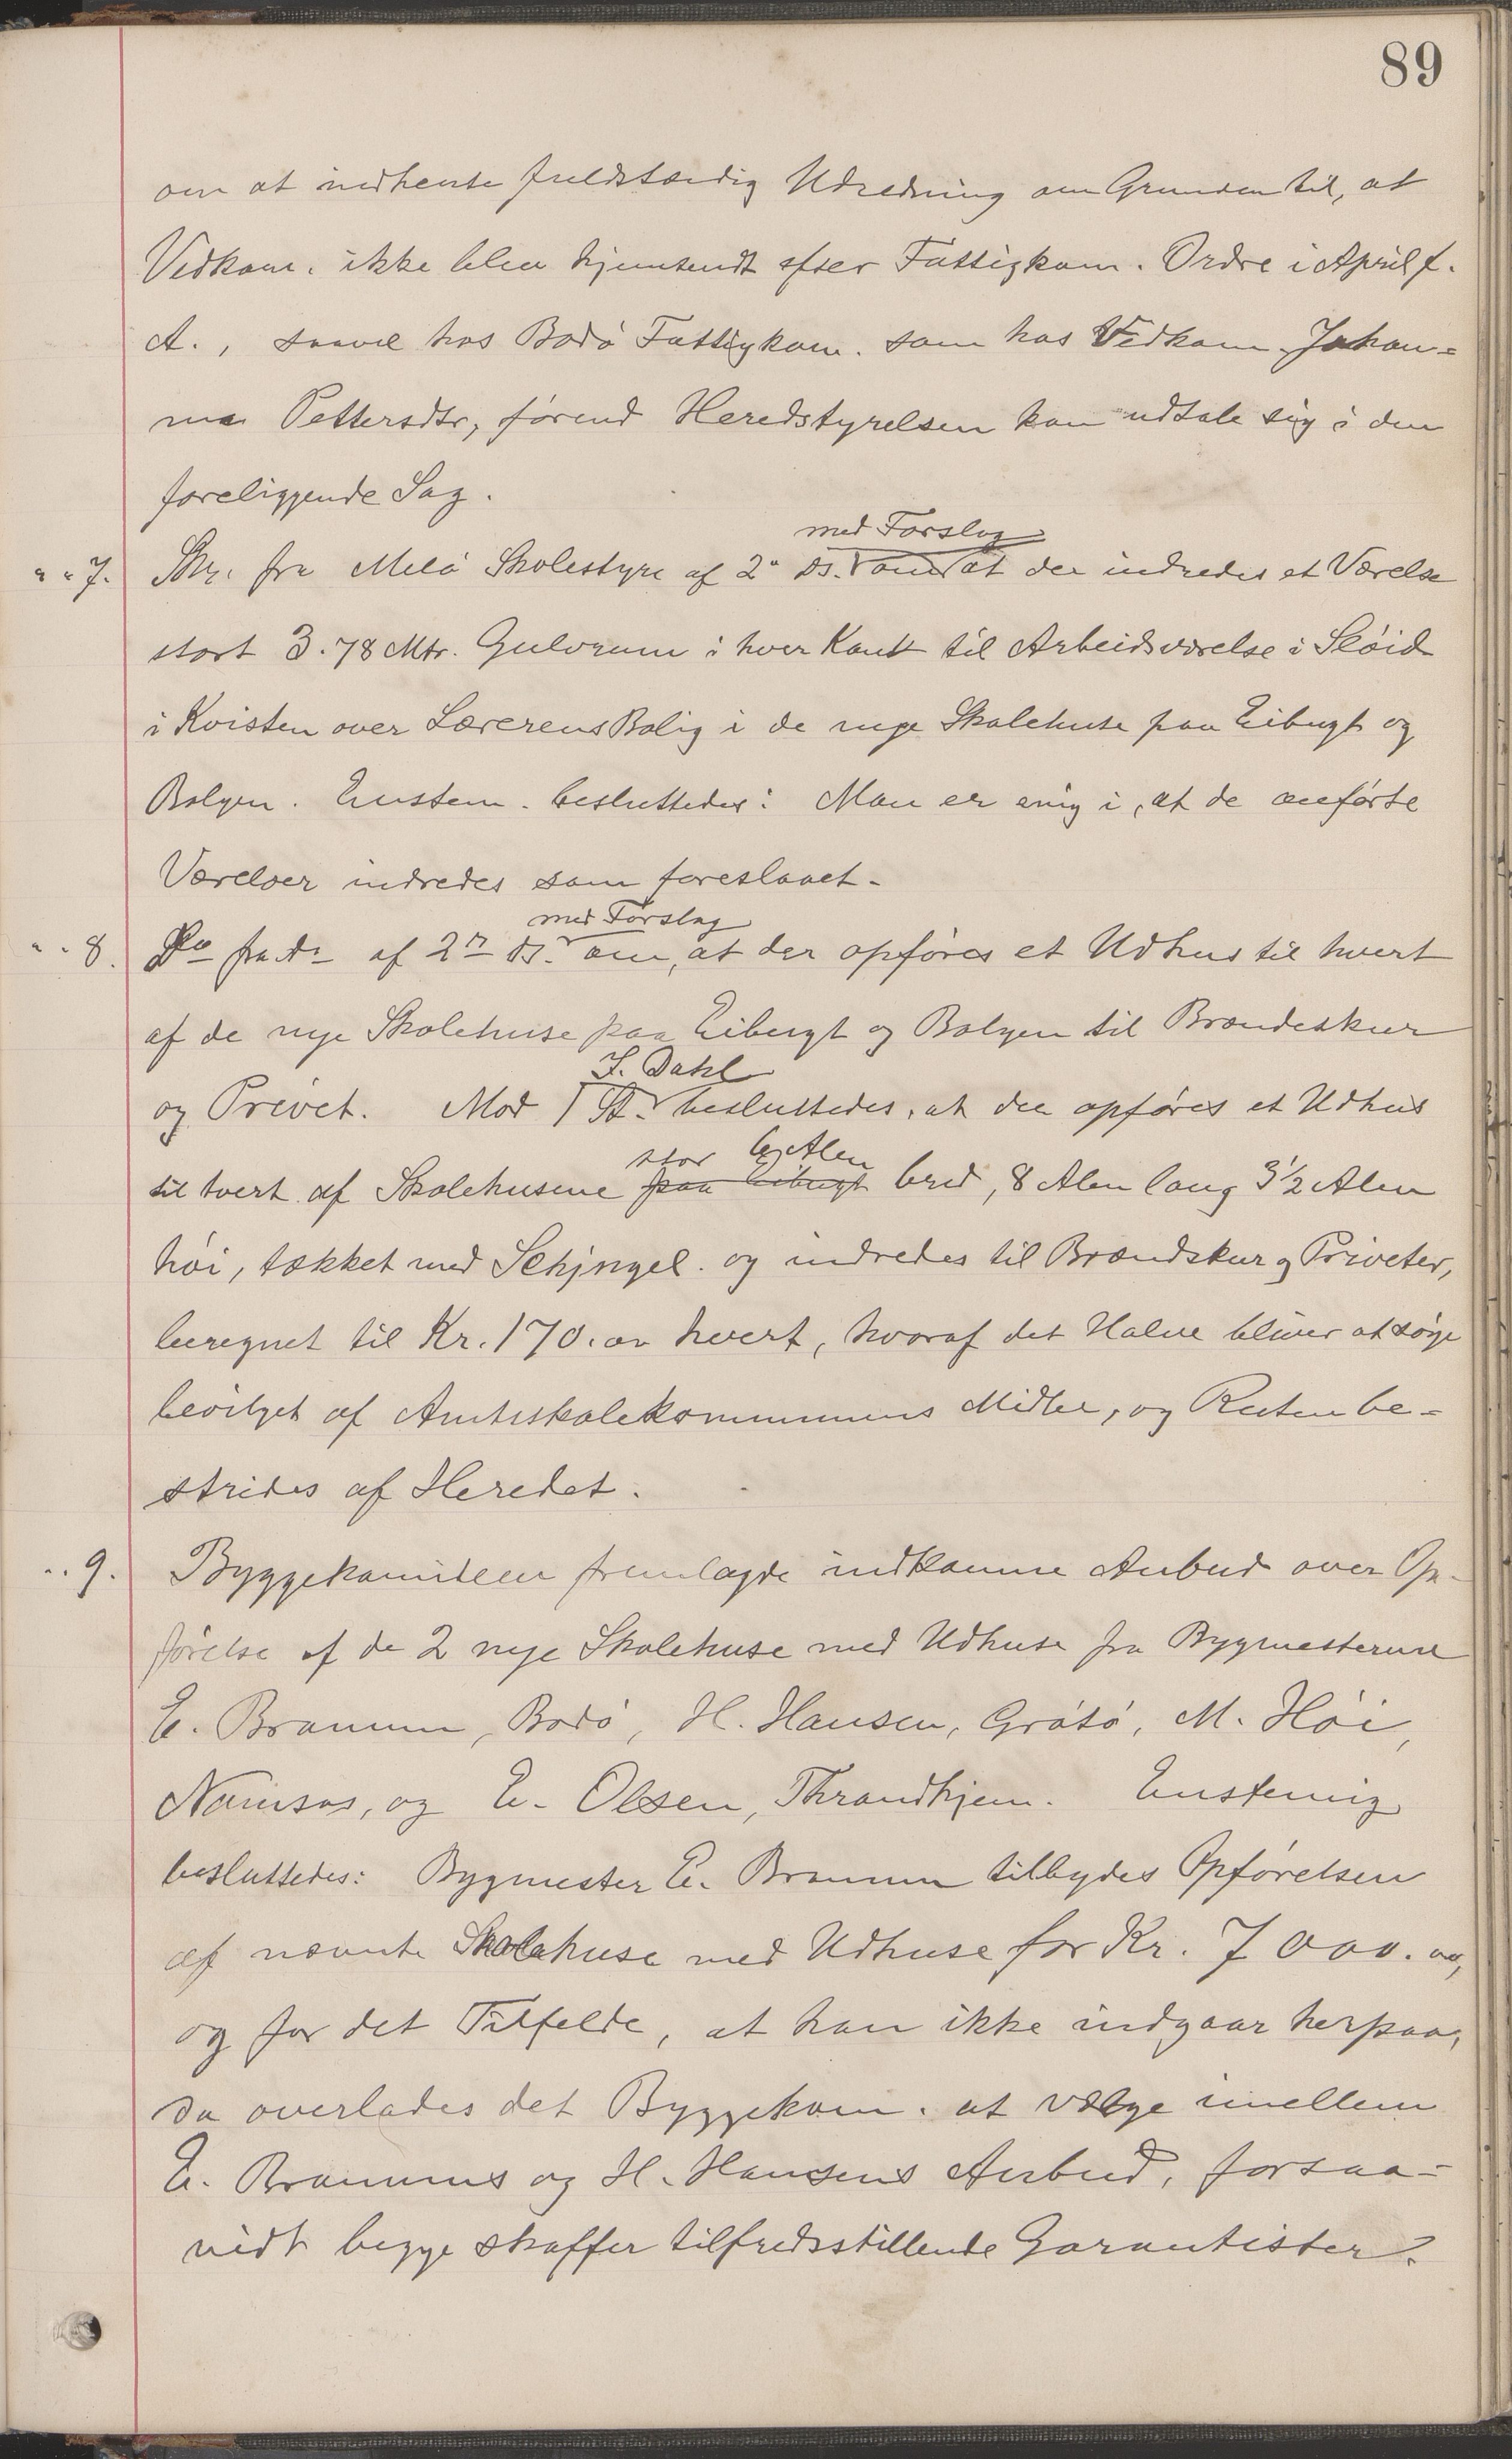 89
om at indhente fuldstændig Udredning om Grunden til, at
Vedkom. ikke blev hjemsendt efter Fattigkom. Ordre i April f.
A., saavel hos Bodø Fattigkom. som hos Vedkom. Johan-
na Pettersdtr, førend Heredstyrelsen kan udtale sig i den
foreliggende Sag.
" " 7. Skr. fra Melø Skolestyre af 2n ds. med Forslag om at der indredes et Værelse
stort 3.78 Mtr. Gulvrum i hver Kant til Arbeidsværelse i Sløid
i Kvisten over Lærerens Bolig i de nye Skolehuse paa Eibugt og
Bolgen. Enstem. besluttedes: Man er enig i, at de anførte
Værelser indredes som foreslaaet.
" " 8. Do fra do af 2n ds. med Forslag om, at der opføres et Udhus til hvert
af de nye Skolehuse paa Eibugt og Bolgen til Brændeskur
og Privet. Mod 1 St. J. Dahl besluttedes, at der opføres et Udhus
til hvert af Skolehusene paa Eibugt stor 6 Alen bred, 8 Alen lang 3 1/2 Alen
høi, tækket med Schjngel. og indredes til Brændskur og Priveter,
beregnet til Kr. 170.00 hvert, hvoraf det Halve bliver at søge
bevilget af Amtsskolekommunens Midler, og Resten be-
strides af Heredet.
" " 9. Byggekomiteen fremlagde indkomne Anbud over Op-
førelse af de 2 nye Skolehuse med Udhuse fra Bygmesterne
E. Bramm, Bodø, H. Hansen, Grøtø, M. Høi,
Namsos, og E. Olsen, Throndhjem. Enstemig
besluttedes: Bygmester E. Bramm tilbydes Opførelsen
af nævnte Skolehuse med Udhuse for Kr. 7 000. 00,
og for det Tilfelde, at han ikke indgaar herpaa,
da overlades det Byggekom. at vælge imellem
E. Bramms og H. Hansens Anbud, forsaa-
vidt begge skaffer tilfredsstillende Garantister.